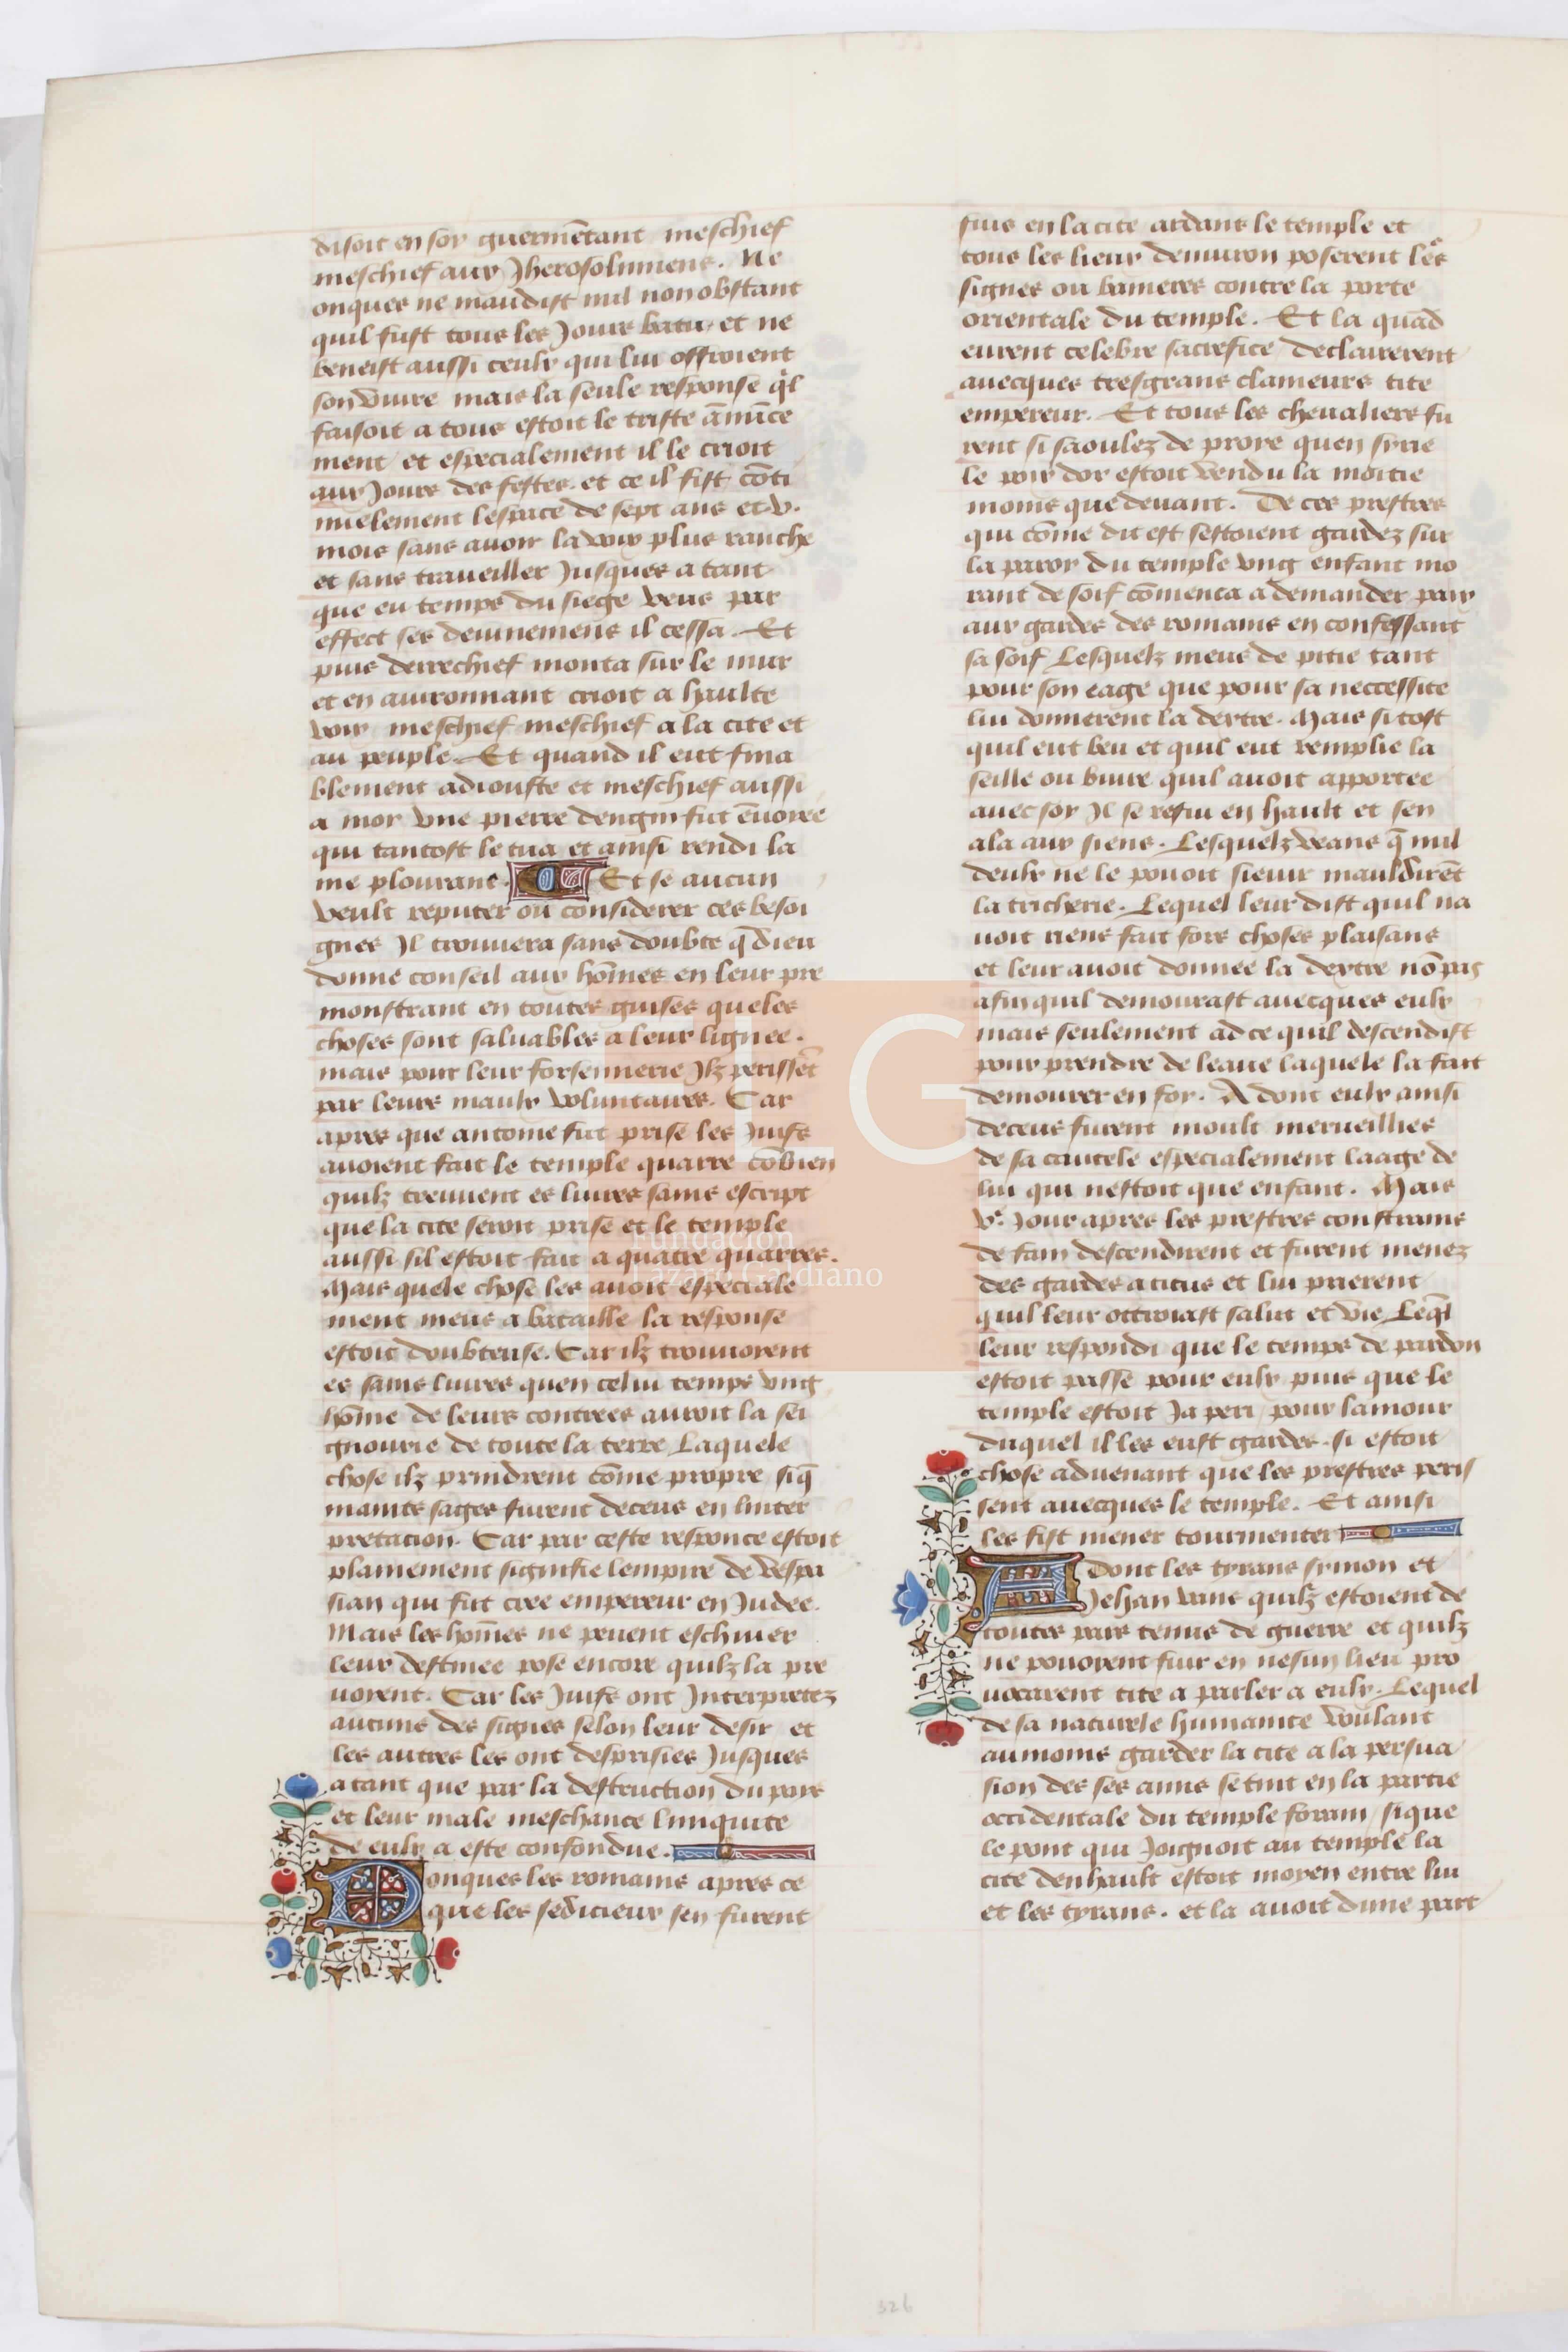 disoit en soy guermētant meschief
meschief aux Jherosolimiens. Ne
onques ne maudist nul nonobstant
quil fust tous les Jours batu et ne
beneist aussi ceulx qui lui offroient
son vivre mais la seule response q̄l
faisoit a tous estoit le triste ānūce
ment et especialement il le crioit
aux Jours des festes. et ce il fist cōti
nuelement lespace de sept ans et .v.
mois sans avoir la voix plus rauche
et sans traveiller Jusques a tant
que eu temps du siege veus par
effect ses devinemens il cessa. Et
puis derrechief monta sur le mur
et en avironnant crioit a haulte
voix meschief meschief a la cite et
au peuple. Et quand il eut fina
blement adiouste et meschief aussi
a moy une pierre dengin fut ēvoiee
qui tantost le tua et ainsi rendi la
me plourant. Et se aucun
veult reputer ou considerer ces besoi
gnes Il trouvera sans doubte q̄ dieu
donne conseil aux hōmes en leur pre
monstrant en toutes guises queles
choses sont saluables a leur lignee.
mais pour leur forsennerie Ilz perissēt
par leurs maulx voluntaires. Car
apres que antoine fut prise les Juifs
avoient fait le temple quarre cōbien
quilz treuvent es livres sains escript
que la cite seroit prise et le temple
aussi sil estoit fait a quatre quarres.
Mais quele chose les avoit especiale
ment meus a bataille la response
estoit doubteuse. Car ilz trouvoient
es sains livres quen celui temps ung
hōme de leurs contrees auroit la sei
gnourie de toute la terre Laquele
chose ilz prindrent cōme propre siq̄
maints sages furent deceus en linter
pretacion. Car par ceste responce estoit
plainement signifie lempire de vespa
sian qui fut cree empereur en Judee.
Mais les hōmes ne peuent eschiver
leur destinee pose encore quilz la pre
voient. Car les Juifs ont Interpretez
aucuns des signes selon leur desir et
les autres les ont desprisies Jusques
a tant que par la destruction du pais
et leur male meschance liniquite
de eulx a este confondue.
Donques les romains apres ce
que les sedicieux sen furent
fuis en la cite ardans le temple et
tous les lieux denviron poserent leᷤ
signes ou banieres contre la porte
orientale du temple. Et la quād
eurent celebre sacrefice declairerent
avecques tresgrans clameurs tite
empereur. Et tous les chevaliers fu
rent si saoulez de proye quen syrie
le pois dor estoit vendu la moitie
moins que devant. De ces prestres
qui cōme dit est sestoient gardez sur
la paroy du temple ung enfant mo
rant de soif cōmenca a demander paix
aux gardes des romains en confessant
sa soif Lesquelz meus de pitie tant
pour son eage que pour sa neccessite
lui donnerent la dextre. Mais si tost
quil eut beu et quil eut remplie la
seille ou buire quil avoit apportee
avec soy Il se refui en hault et sen
ala aux siens. Lesquelz veans q̄ nul
deulx ne le povoit sievir mauldirēt
la tricherie. Lequel leur dist quil na
voit riens fait fors choses plaisans
et leur avoit donnee la dextre nō pas
afin quil demourast avecques eulx
mais seulement ad ce quil descendist
pour prendre de leaue laquele la fait
demourer en foy. Adont eulx ainsi
deceus furent moult merveillies
de sa cautele especialement laage de
lui qui nestoit que enfant. Mais
v.e Jour apres les prestres constrains
de fain descendirent et furent menez
des gardes a titus et lui prierent
quil leur ottroiast salut et vie Leq̄l
leur respondi que le temps de pardon
estoit passe pour eulx puis que le
temple estoit Ja peri pour lamour
duquel il les eust gardes. si estoit
chose advenant que les prestres peris
sent avecques le temple. Et ainsi
les fist mener tourmenter
Adont les tyrans symon et
Jehan veans quilz estoient de
toutes pars tenus de guerre et quilz
ne povoyent fuir en nesun lieu pro
vocarent tite a parler a eulx. Lequel
de sa naturele humanite voulant
au moins garder la cite a la persua
sion des ses amis se tint en la partie
occidentale du temple forain sique
le pont qui Joignoit au temple la
cite denhault estoit moyen entre lui
et les tyrans. et la avoit dune part
326
LG
Fundación
Lázaro Galdiano